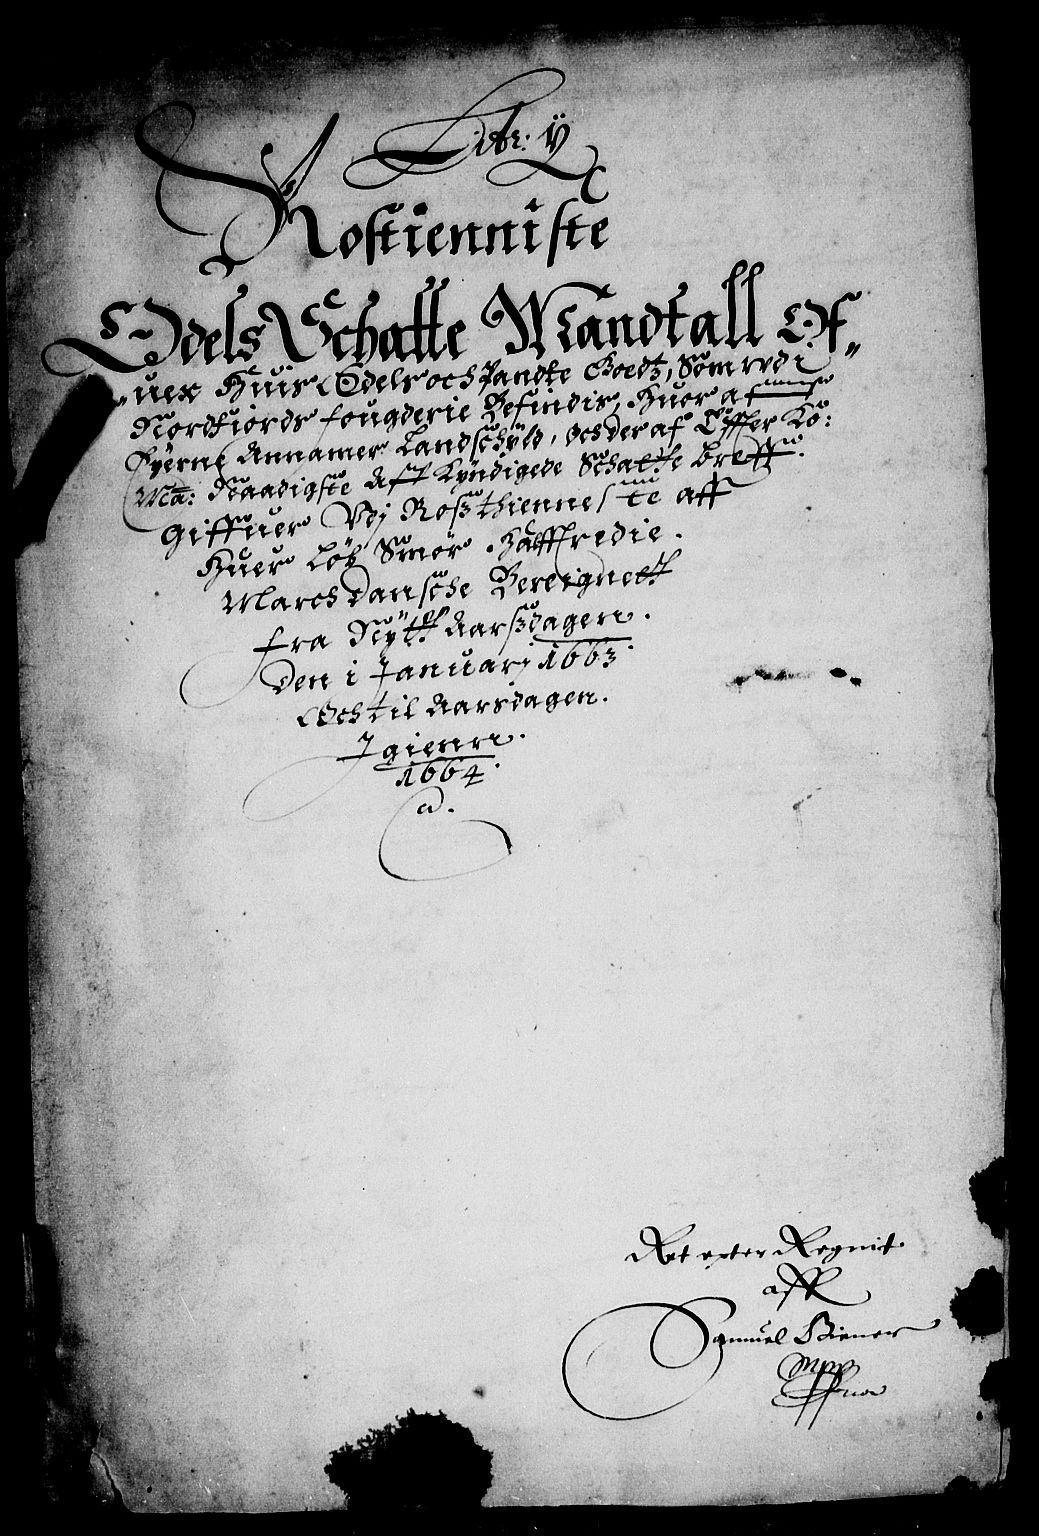 Litr: ÿ
Rostienniste
Odels Schatte Mandtall Of„
„uer Huis Odels och Pandte Goedtz, Som vdi
Nordfiords fougderie Befindis, Huer af
Byerne Annamer Landschyld, Och der af Effter Ko:
Ma: Naadigste Aft Kyndigede Schatte breff.
Giffuer Vdj Roszthienneste aff
Huer Løb Smør. Halffredie.
March dansche Bereignett
fra Nytt Aarszdagen.
Den i Januarj 1663.
Och til Aarsdagen.
Igienn.
1664.
a.
Ret epter Regnit.
aff
Samuel Biener
Mpp